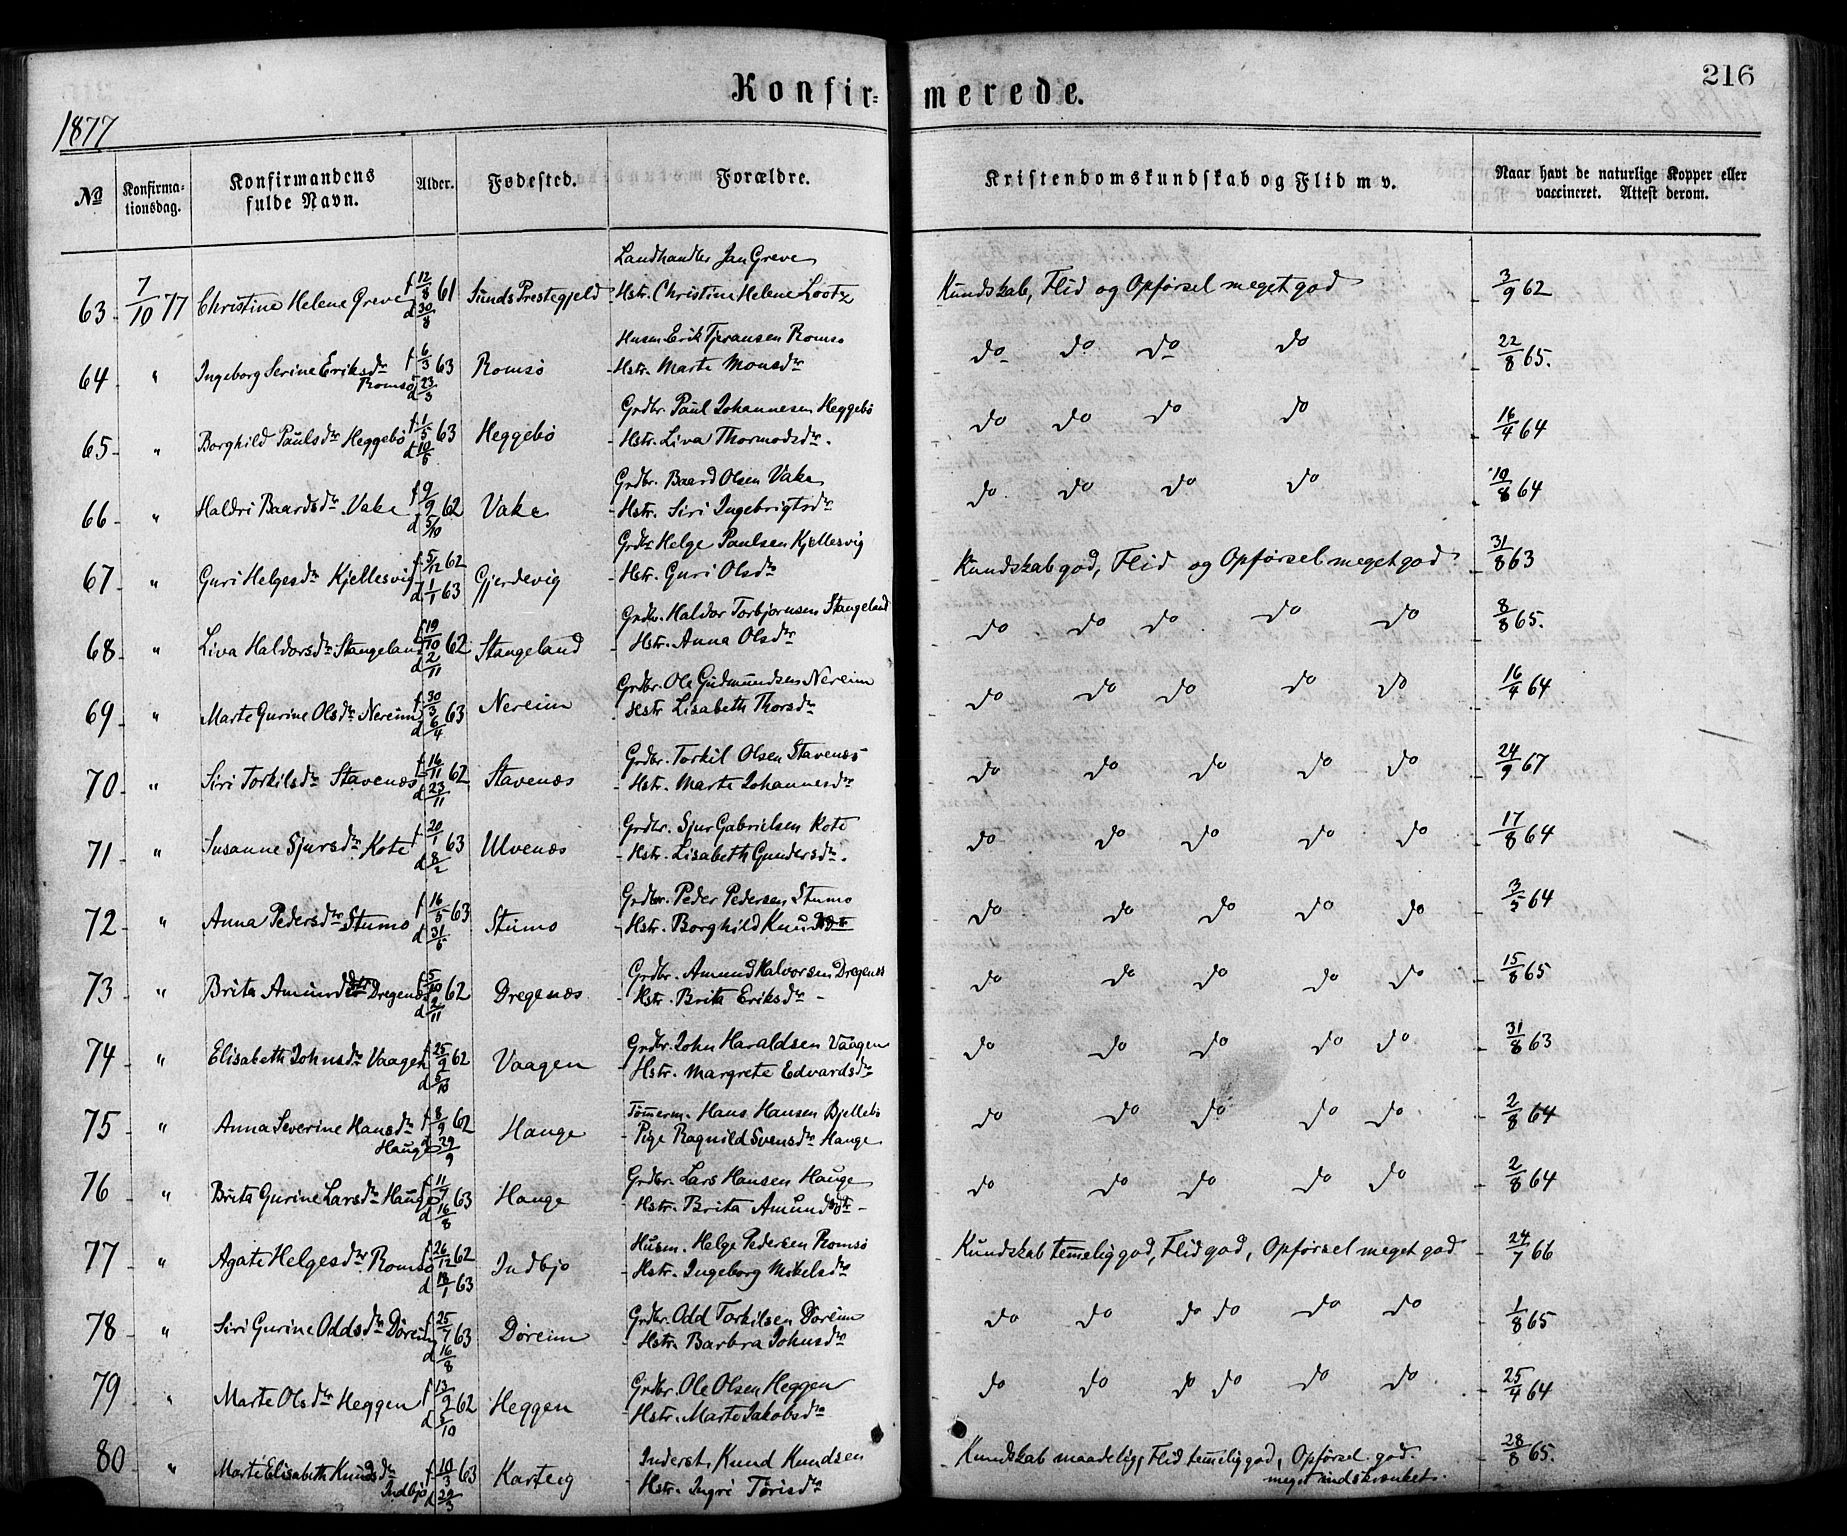 216
Konfir= merede.
1877
No Konfirma-tionsdag. Konfirmandens fulde Navn. Alder. Fødested. Forældre. Kristendomskundskab og Flid m v. Naar havt de naturlige Kopper eller vaccineret. Attest derom.
Landhandler Jan Greve
63 7/10 77 Christine Helene Greve f 12/8 61 d 30/8 Sunds Prestegjeld Hstr. Christine Helene Lootz Kundskab, Flid og Opførsel meget god 3/9 62
Husm Erik Tjeransen Romsø
64 " Ingeborg Serine Eriksdr Romsø f 6/3 63 d 23/3 Romsø Hstr. Marte Monsdr do do do do 22/8 65.
Grdbr Paul Johannesen Heggebø
65 " Borghild Paulsdr Heggebø f 1/5 63 d 10/5 Heggebø Hstr. Liva Thormodsdr. do do do do 16/4 64
Grdbr. Baard Olsen Vake
66 " Haldri Baardsdr Vake f 9/9 62 d 5/10 Vake Hstr. Siri Ingebrigtsdr do do do do 10/8 64
Grdbr Helge Paulsen Kjellesvig
67 " Guri Helgesdr Kjellesvig f 5/12 62 d 1/1 63 Gjerdevig Hstr. Guri Olsdr Kundskab god, Flid og Opførsel meget god 31/8 63
Grdbr. Haldor Torbjørnsen Stangeland
68 " Liva Haldorsdr Stangeland f 19/10 62 d 2/11 Stangeland Hstr. Anna Olsdr do do do do do 8/8 65.
Grdbr. Ole Gudmundsen Nereim
69 " Marte Gurine Olsdr Nereim f 30/3 63 d 6/4 Nereim Hstr Lisabeth Thorsdr do do do do do 16/4 64
Grdbr. Torkil Olsen Stavenæs
70 " Siri Torkilsdr Stavenæs f 16/11 62 d 23/11 Stavenæs Hstr. Marte Johannesdr do do do do do 24/9 67
Grdbr. Sjur Gabrielsen Kote
71 " Susanne Sjursdr Kote f 20/1 63 d 8/2 Ulvenæs Hstr. Lisabeth Gundersdr. do do do do do 17/8 64
Grdbr. Peder Pedersen Stumo
72 " Anna Pedersdr Stumo f 16/5 63 d 31/5 Stumo Hstr. Borghild Knudsdr do do do do do 3/5 64
Grdbr. Amund Halvorsen Dregenæs
73 " Brita Amundsdtr Dregenæs f 5/10 62 d 2/11 Dregenæs Hstr. Brita Eriksdr do do do do do 15/8 65
Grdbr. John Haraldsen Vaagen
74 " Elisabeth Johnsdr Vaagen f 25/9 62 d 5/10 Vaagen Hstr. Margrete Edvardsdr do do do do do 31/8 63
Tømmerm. Hans Hansen Bjellebø
75 " Anna Severine Hansdr Hauge f 8/9 62 d 29/9 Hauge Pige Ragnild Svensdr Hauge do do do do do 2/8 64
Grdbr. Lars Hansen Hauge
76 " Brita Gurine Larsdr Hauge f 11/7 63 d 16/8 Hauge Hstr. Brita Amundsdtr do do do do do 2/8 64
Husm. Helge Pedersen Romsø
77 " Agate Helgesdr Romsø f 26/12 62 d 18/1 63 Indbjo Hstr. Ingeborg Mikelsdr Kundskab temmelig god, Flid god, Opførsel meget god 24/7 66
Grdbr. Odd Torkilsen Døreim
78 " Siri Gurine Oddsdr Døreim f 25/7 63 d 16/8 Døreim Hstr. Barbra Johnsdr do do do do do do 1/8 65
Grdbr. Ole Olsen Heggen
79 " Marte Olsdr Heggen f 13/9 62 d 5/10 Heggen Hstr. Marte Jakobsdr do do do do do do 25/4 64
Inderst. Knud Knudsen
80 " Marte Elisabeth Knudsdr Indbjo f 10/3 63 d 22/3 Hstr. Ingri Kundskab maadelig, Flid temmelig god, Opførsel god. 28/8 65.
meget indskrænket.